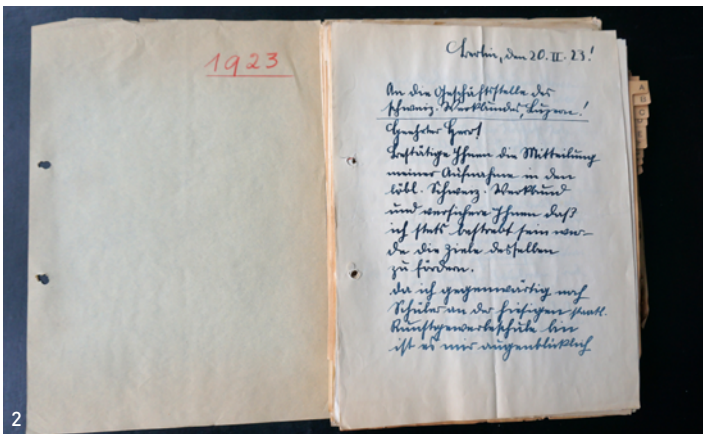 1923
Berlin, den 20. II. 23!
An die Geschäftsstelle des
schweiz. Werkbundes, Luzern!
Geehrter Herr!
Bestätige Ihnen die Mitteilung
meiner Aufnahme in den
löbl. Schweiz. Werkbund
und versichere Ihnen daß
ich stets bestrebt sein wer-
de die Ziele desselben
zu fördern.
Da ich gegenwärtig noch
Schüler an der hiesigen staatl.
Kunstgewerbeschule bin
ist es mir augenblicklich
A
B
C
D
E
2